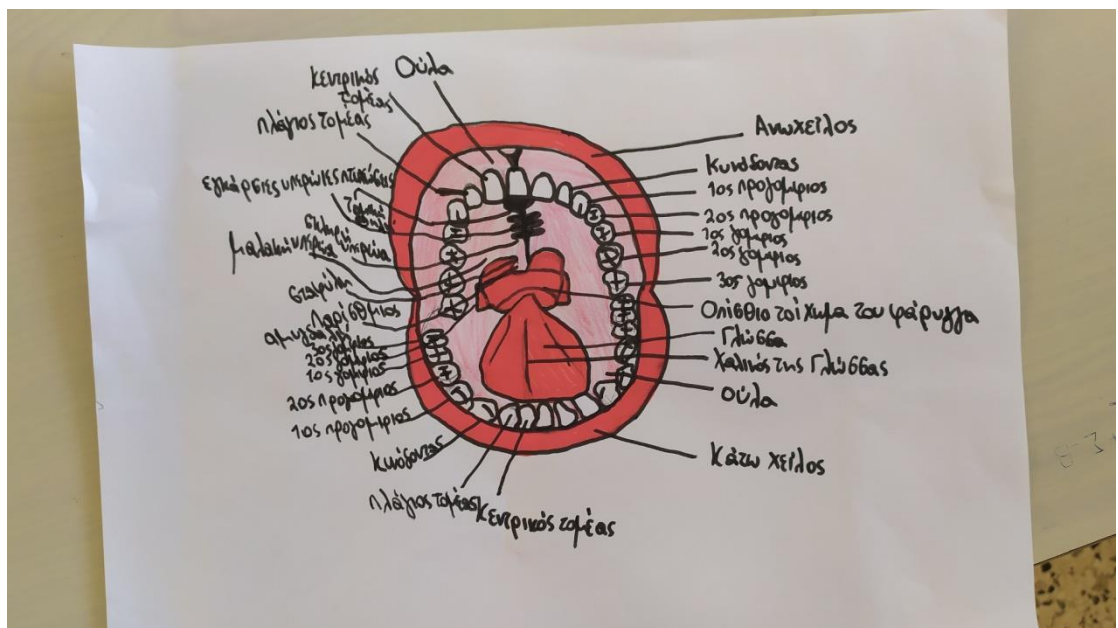 Ούλα
κεντρικός
τομέας
πλάγιος τομέας
εγκάρσιες υπερώιες πτυχώσεις
τομική
θηλή
σκληρή
υπερώα
μαλακή υπερώα
σταφυλή
Παρίσθμιος
αμυγδαλή
3ος γομφιος
2ος γομφιος
1ος γομφιος
2ος προγομφιος
1ος προγομφιος
Κυνόδοντας
πλάγιος τομέας
Κεντρικός τομέας
Ανω χείλος
Κυνόδοντας
1ος προγομφιος
2ος προγομφιος
1ος γομφιος
2ος γομφιος
3ος γομφιος
Οπίσθιο τοίχωμα του φάρυγγα
Γλώσσα
Χαλινός της Γλώσσας
Ούλα
Κάτω χείλος